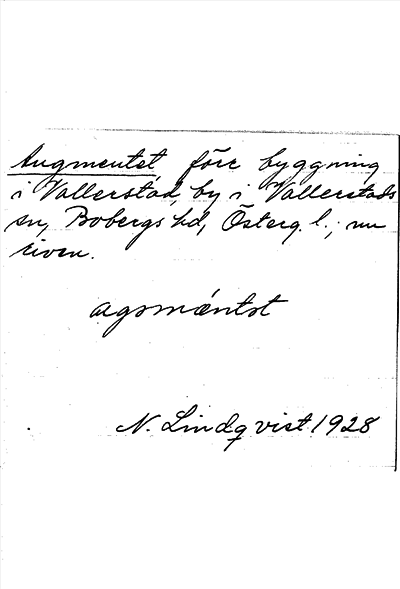 Augmentet, förr byggning
i Vallerstad, by i Vallerstads
sn, Bobergs hd, Österg. l.; nu
riven.
agsmæntət
N. Lindqvist 1928